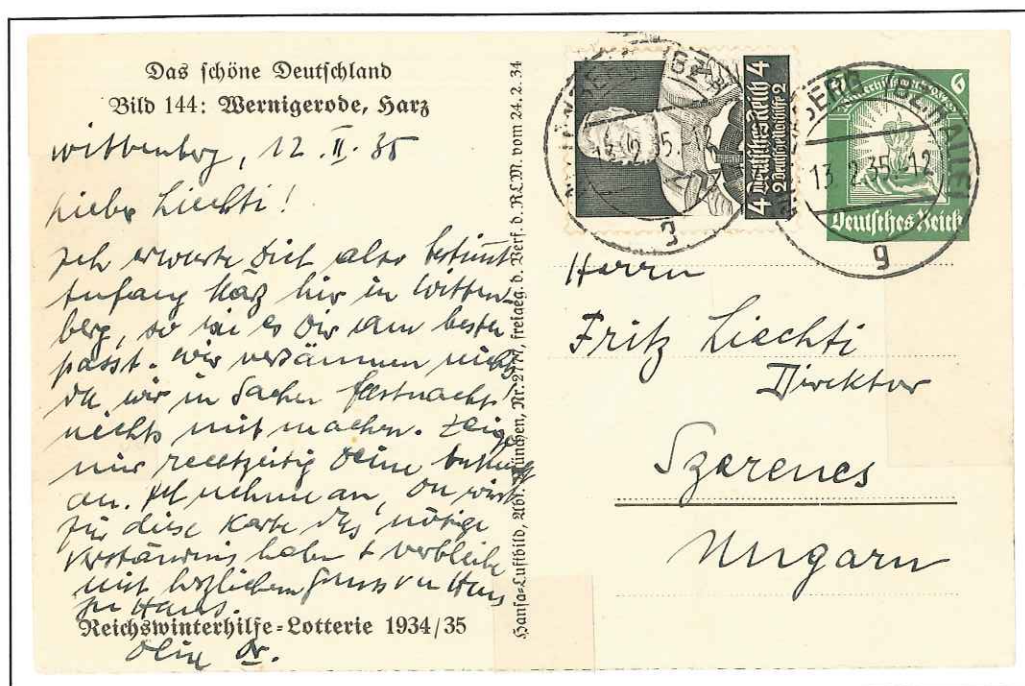 Das schöne Deutschland
Bild 144: Wernigerode, Harz
Wittenberg, 12. II. 35
Lieber Liechti!
Ich erwarte Dich also bestimmt
Anfang März hier in Witten-
berg, so wie es Dir am besten
passt. Wir versäumen nichts
da wir in Sachen Fastnacht
nichts mit machen. Zeige
mir rechtzeitig Deine
an. Ich nehme an, Du wirst
für diese Karte das nötige
Verständnis haben & verbleibe
mit herzlichem Gruss von Haus
zu Haus.
Reichswinterhilfe=Lotterie 1934/35
Dein
Hansa=Luftbild, Abt. München, Nr. freigeg. d. Verf. d. R.L.M. vom 24. 2. 34
4 Deutsches Reich 4
2 Deutsche Nothilfe 2
13. 2. 35. -12
g
6
Deutsches Reich
13. 2. 35. -12
g
Herrn
Fritz Liechti
Direktor
Szerencs
Ungarn